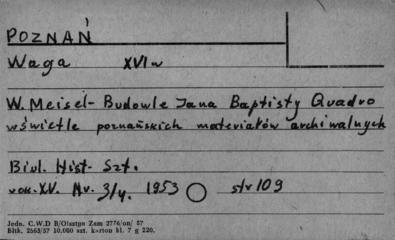 POZNAŃ
Waga XVI w
W. Meisel - Budowle Jana Baptisty Quadro
w świetle poznańskich materiałów archiwalnych
Biul. Hist. Szt.
rok. XV. Nr. 3/4. 1953 str 109
Jedn. C.W.D B/Olsztyn Zam 2776/on/ 57
Bltk. 2563/57 10.000 szt. karton kl. 7 g 220.